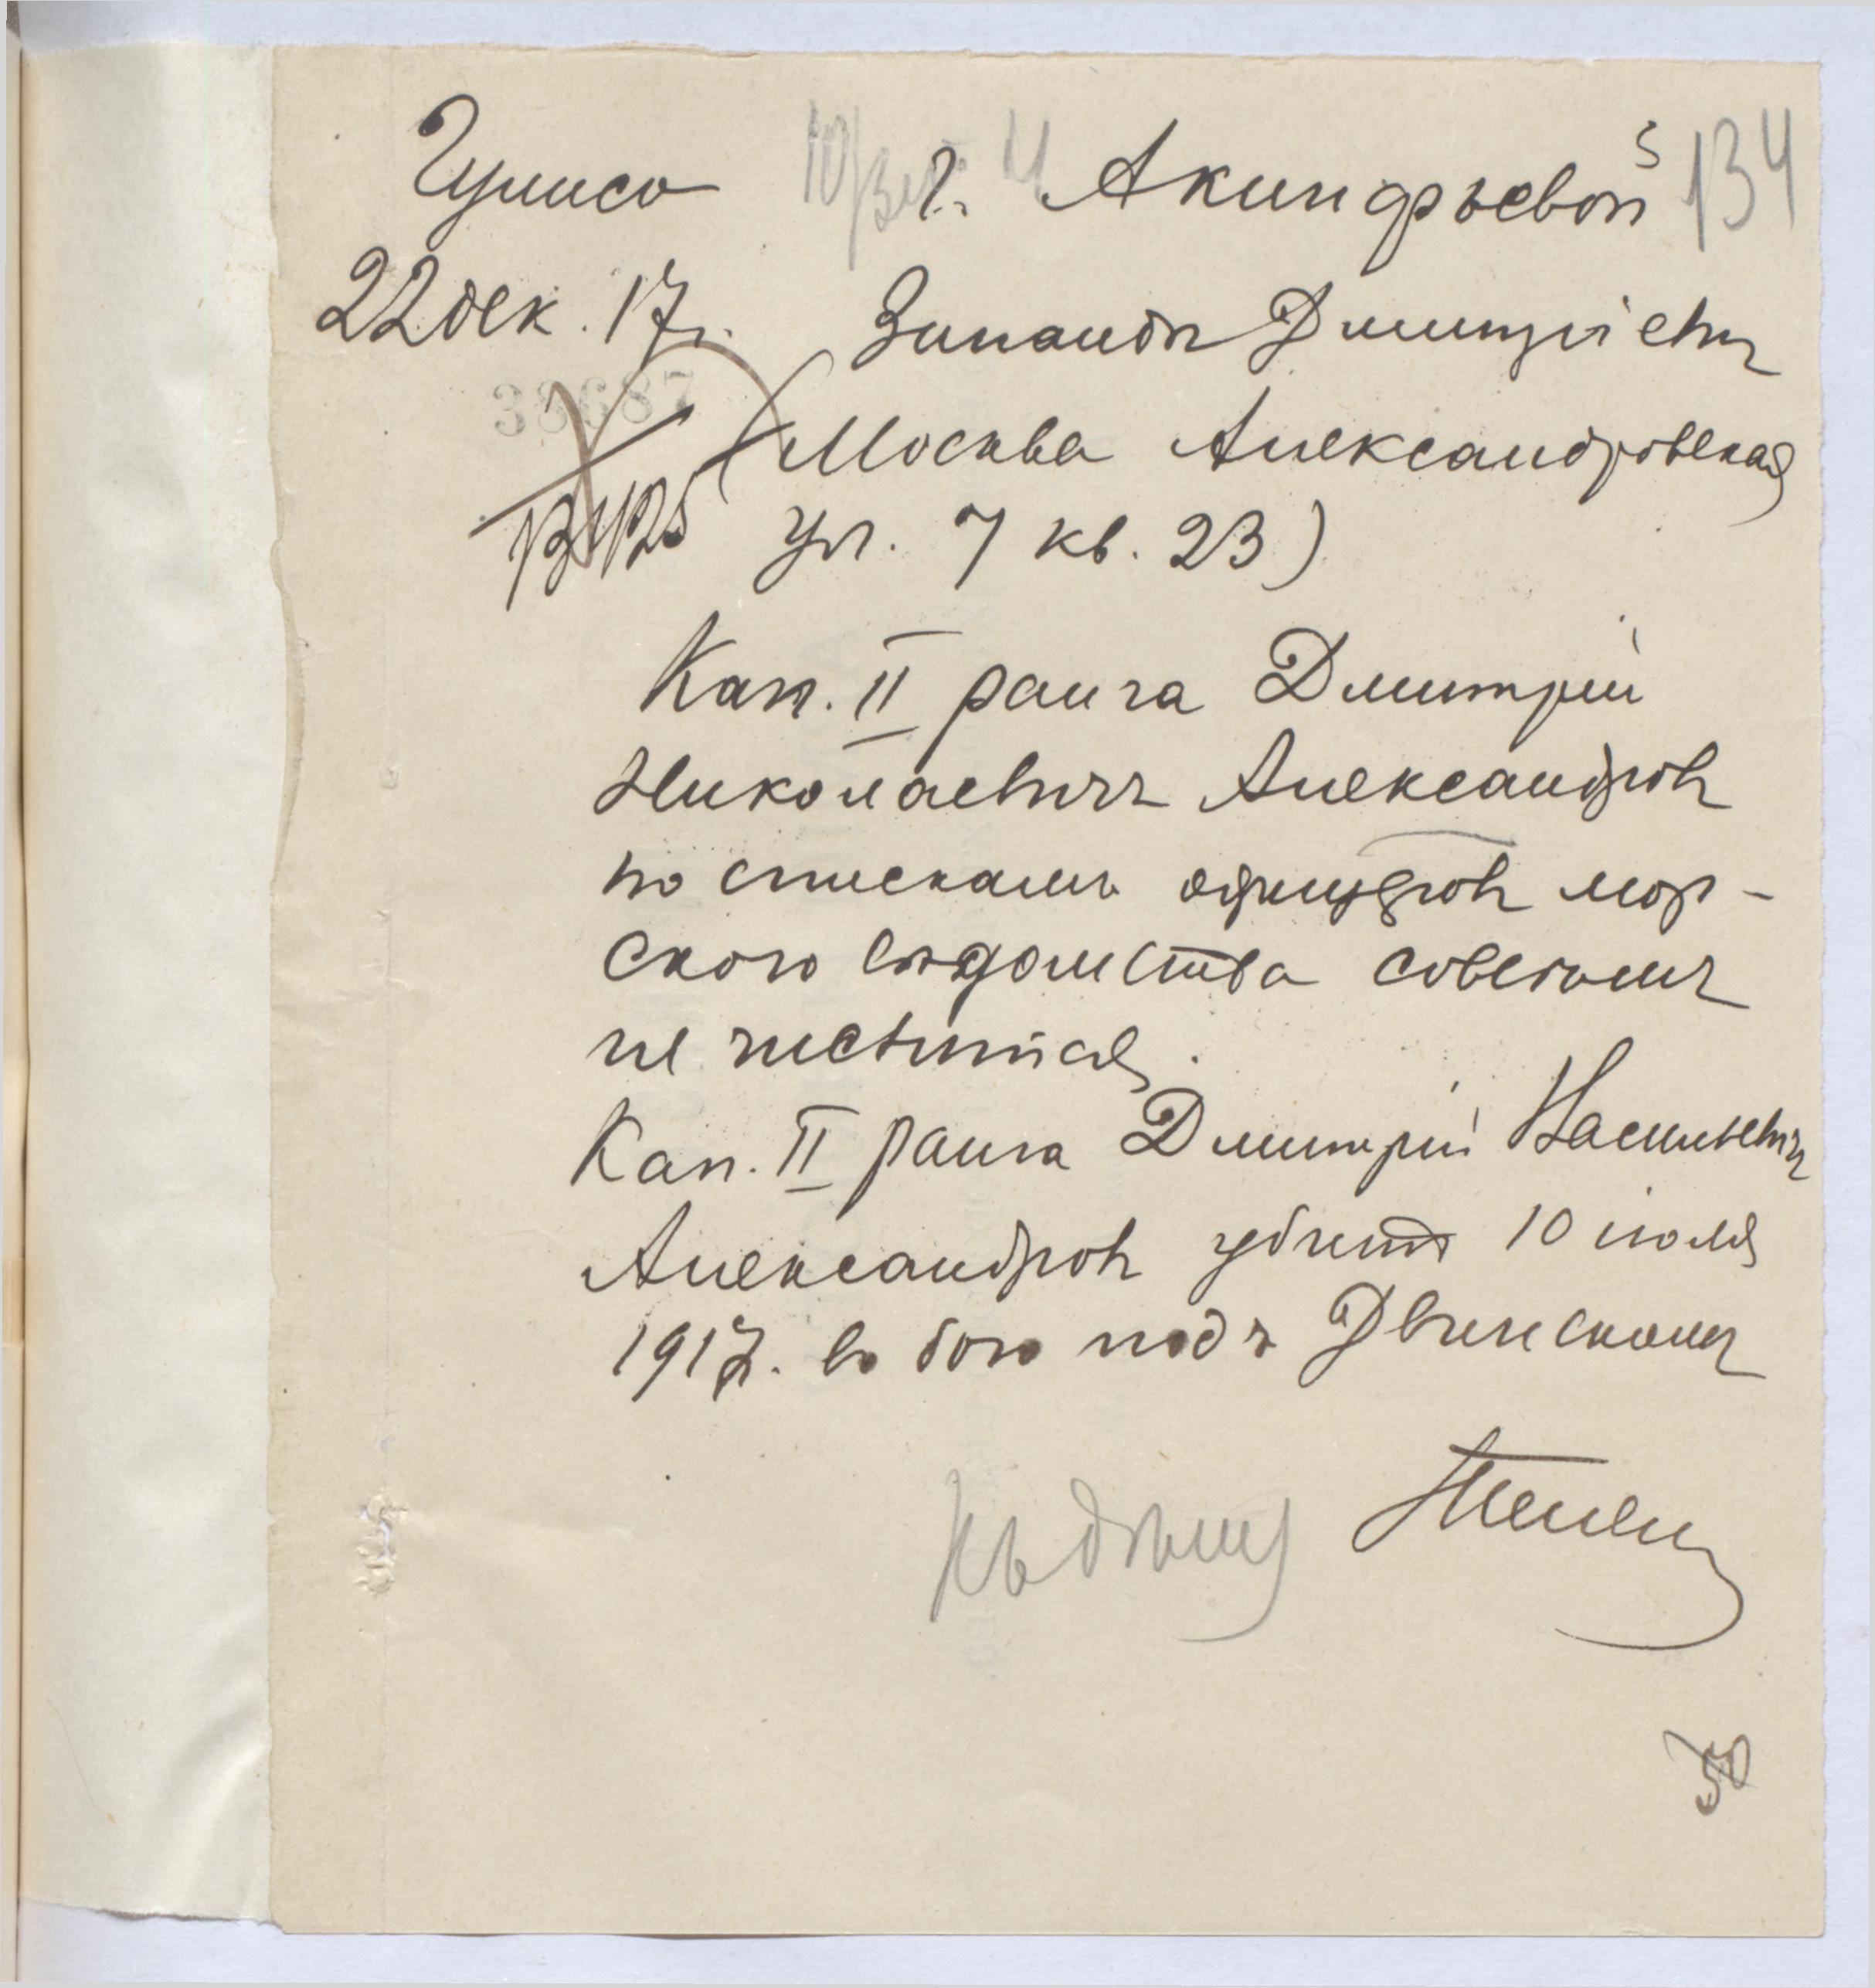 Гумсо г. Акинфьевой 134
22 дек. 17г. Зинаиде Дмитриевне
38687
(Москва Александровская
ул. 7 кв. 23)
Кап. II ранга Дмитрий
Николаевичъ Александровъ
по спискамъ офицеровъ мор-
ского вѣдомства совсѣмъ
не числится.
Кап. II ранга Дмитрій Васильевичъ
Александровъ убитъ 10 іюля
1917. въ бою подъ Двинскомъ
50